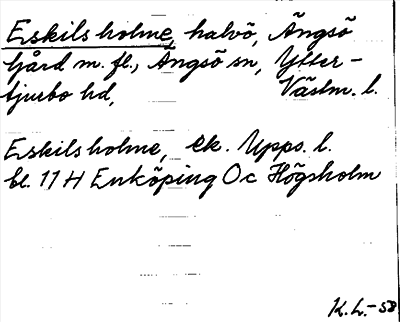 Eskilsholme, halvö, Ängsö
gård m. fl., Ängsö sn, Ytter-
tjurbo hd, Västm. l.
Eskilsholme, ek. Upps. l.
bl. 11 H Enköping Oc Högsholm
K.L.-58